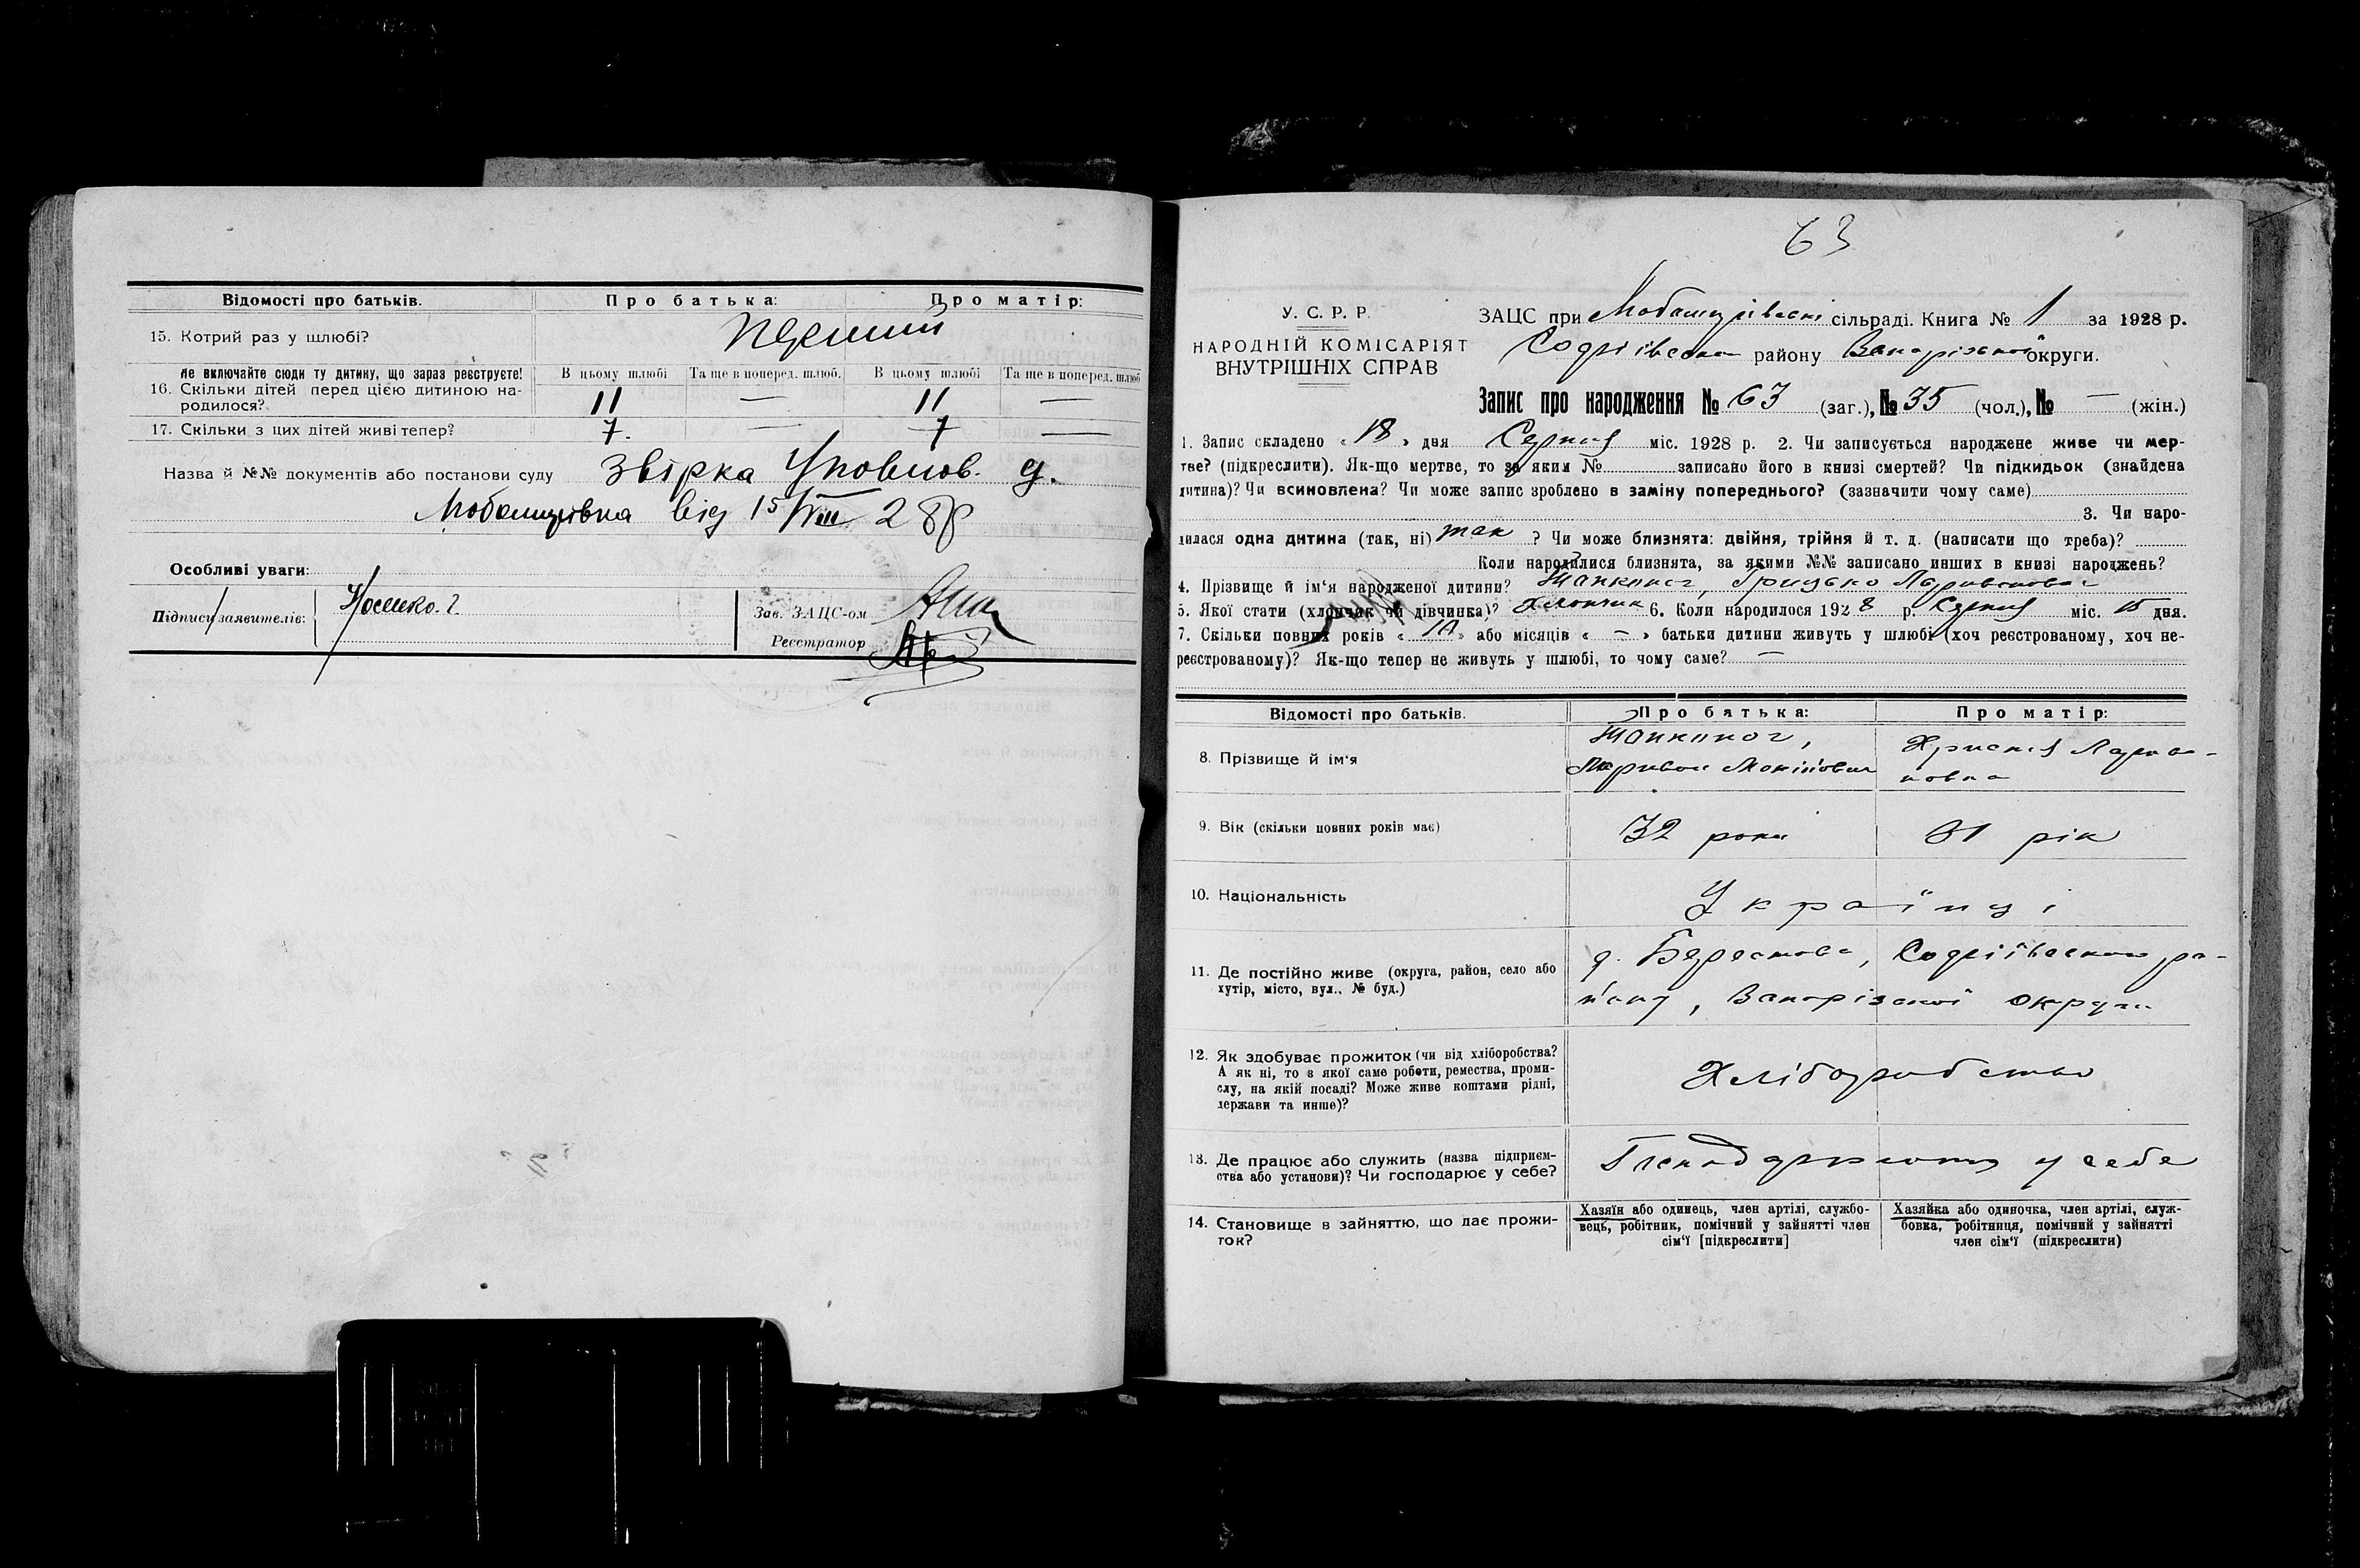 Відомості про батьків. Про батька: Про матір:
15. Котрий раз у шлюбі? перший
Не включайте сюди ту дитину, що зараз реєструєте! В цьому шлюбі Та ще в поперед. шлюб. В цьому шлюбі Та ще в поперед. шлюб
16. Скільки дітей перед цією дитиною на-
родилося? 11 — 11 —
17. Скільки з цих дітей живі тепер? 7. — 7 —
Назва й №№ документів або постанови суду Звірка Уповнов. д.
від 15/VIII 28 р
Особливі уваги:
Підписи заявителів:
Зав. ЗАЦС-ом
Реєстратор
63
У. С. Р. Р.
НАРОДНІЙ КОМІСАРІЯТ
ВНУТРІШНІХ СПРАВ
ЗАЦС при сільраді. Книга № 1 за 1928 р.
району Запорізької округи.
Запис про народження № 63 (заг.), № 35 (чол.), № — (жін.)
1. Запис складено « 18 » дня Серпня міс. 1928 р. 2. Чи записується народжене живе чи мер-
тве? (підкреслити). Як-що мертве, то за яким № записано його в книзі смертей? Чи підкидьок (знайдена
дитина)? Чи всиновлена? Чи може запис зроблено в заміну попереднього? (зазначити чому саме)
3. Чи наро-
дилася одна дитина (так, ні) так ? Чи може близнята: двійня, трійня й т. д. (написати що треба)?
Коли народилися близнята, за якими №№ записано инших в книзі народжень?
4. Прізвище й ім'я народженої дитини? Грицько
5. Якої стати (хлопчик чи дівчинка)? Хлопчик 6. Коли народилося 1928 р. Серпня міс. 15 дня.
7. Скільки повних років « 10 » або місяців « — » батьки дитини живуть у шлюбі (хоч реєстрованому, хоч не-
реєстрованому)? Як-що тепер не живуть у шлюбі, то чому саме? —
Відомості про батьків. Про батька: Про матір:
8. Прізвище й ім'я
9. Вік (скільки повних років має) 32 роки 31 рік
10. Національність Українці
11. Де постійно живе (округа, район, село або
хутір, місто, вул., № буд.) д. Берестова, ра-
йону, Запорізької округи
12. Як здобуває прожиток (чи від хліборобства?
А як ні, то з якої саме роботи, ремества, проми-
слу, на якій посаді? Може живе коштами рідні,
держави та инше)? Хліборобство
13. Де працює або служить (назва підприєм-
ства або установи)? Чи господарює у себе? Господарюють у себе
14. Становище в зайняттю, що дає прожи-
ток?
Хазяїн або одинець, член артілі, службо-
вець, робітник, помічний у зайнятті член
сім'ї [підкреслити]
Хазяйка або одиночка, член артілі, служ-
бовка, робітниця, помічний у зайнятті
член сім'ї (підкреслити)